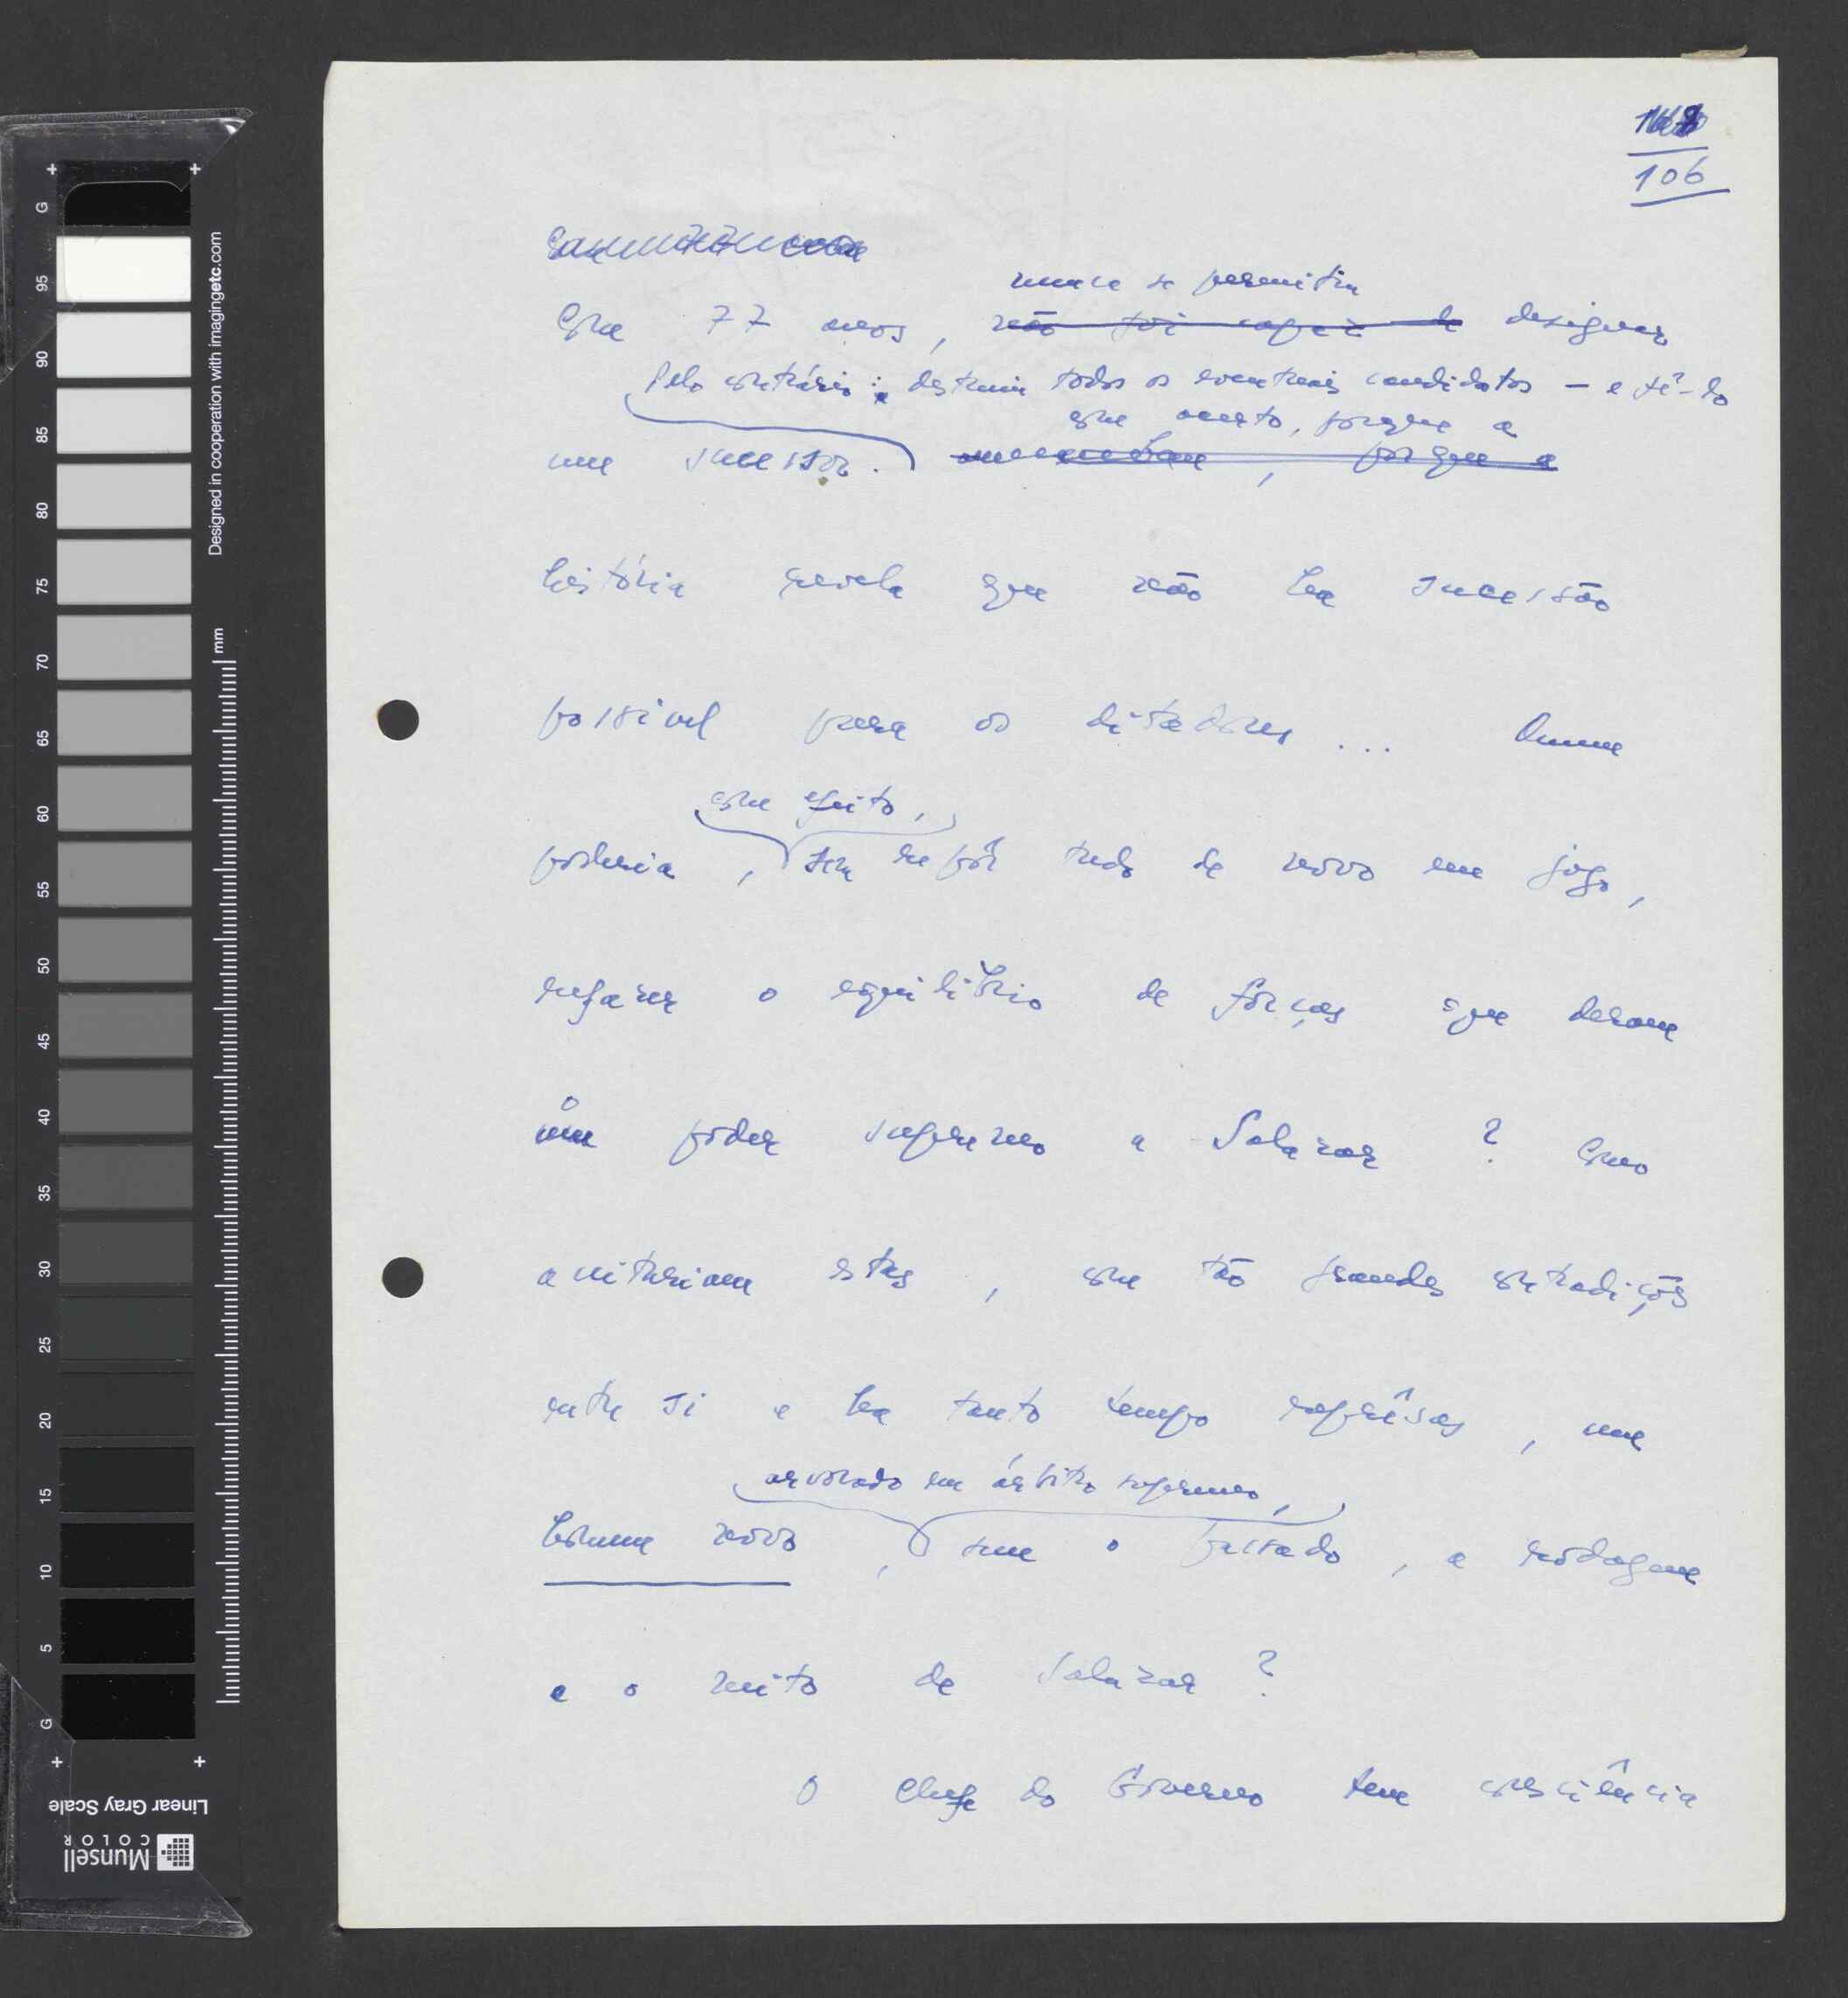 106
nunca se permitiu
Com 77 anos, não foi capaz de designar
Pelo contrário: destruiu todos os eventuais candidatos – e fê-lo
com acerto, porque a
um sucessor. , porque a
história revela que não há sucessão
possível para os ditadores... Quem
com efeito,
poderia, sem repôr tudo de novo em jogo,
refazer o equilíbrio de fôrças que deram
o poder supremo a Salazar? Como
aceitariam estas, com tão grandes contradições
entre si e há tanto tempo reprêsas, um
arvorado em árbitro supremo,
homem novo, sem o passado, a rodagem
e o mito de Salazar?
O Chefe do Governo tem consciência
G
95
90
85
80
75
70
65
60
55
50
45
40
35
30
25
20
15
10
5
G
mm
Designed in cooperation with imagingetc.com
Linear Gray Scale
Munsell
COLOR